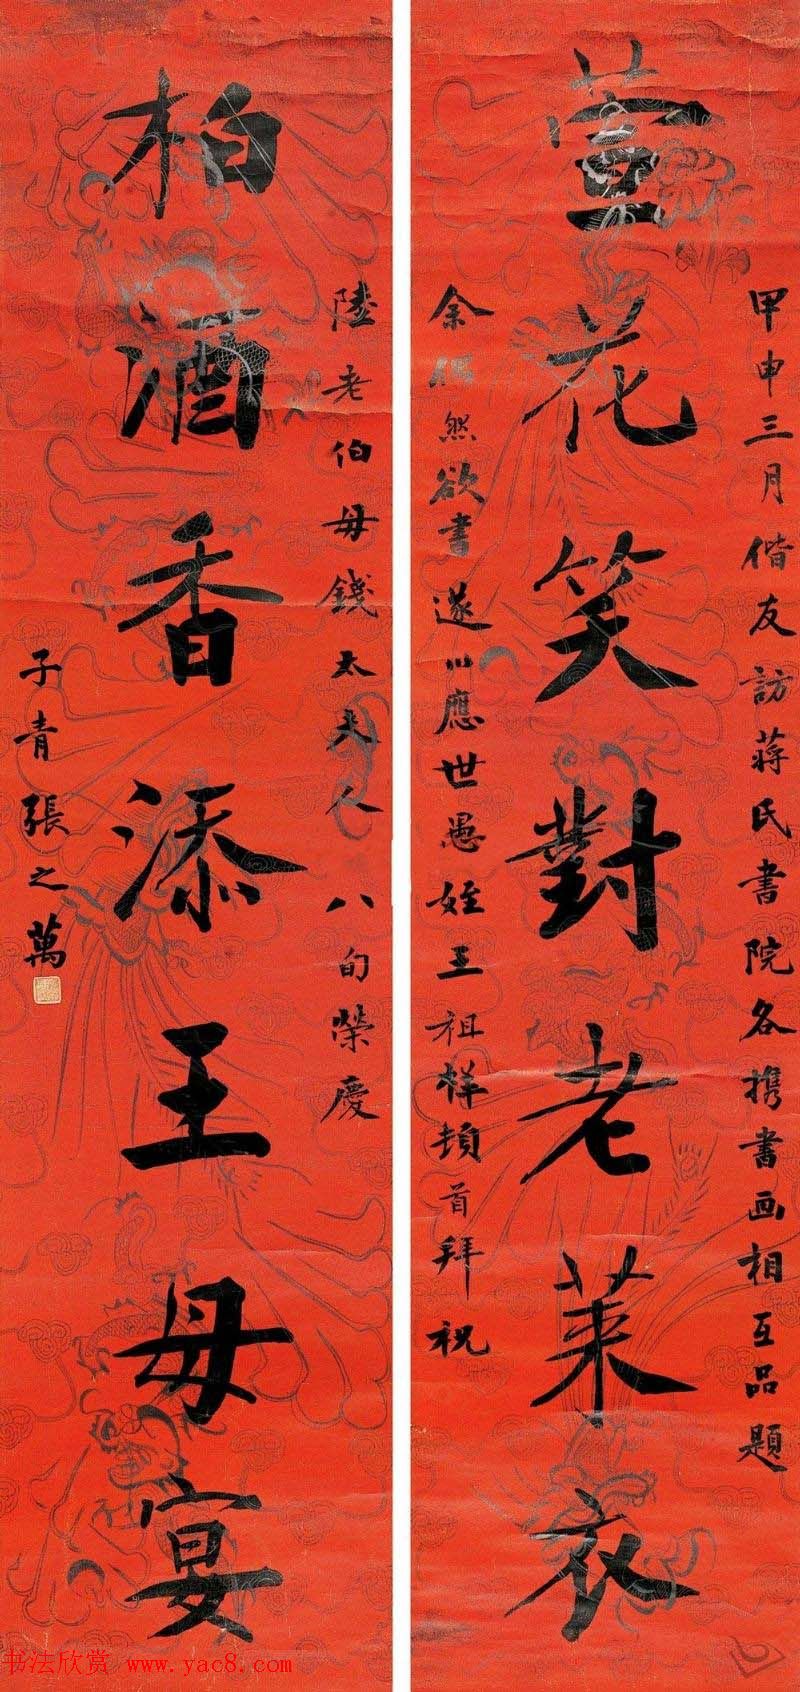 甲申三月偕友訪蔣氏書院各攜書画相互品題
萱花笑對老萊衣
余偶然欲書遂以應世愚姪王祖祥頓首拜祝
陸老伯母錢太夫人 八旬榮慶
柏酒香添王母宴
子青張之萬
书法欣赏 www.yac8.com